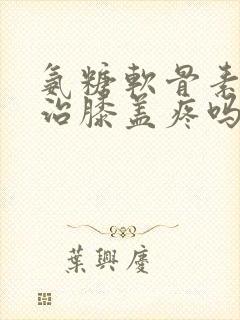 氨糖軟骨素
治膝盖疼吗
葉興慶